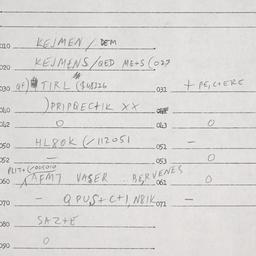 010 KEJMEN / DEM
020 KEJMENS / QED MEtS (027
030 af) TIRL ($u8226 031 + PE, C+ERE
040 ) PRIPQECTIK XX
042 0 043 0
050 HL80K (/112051 051 -
052 - 053 0
060 AFM7 VASER BERVENES 061 0
070 - Q PUS+C+1, N81K 071 -
080 SAZ+E
090 0